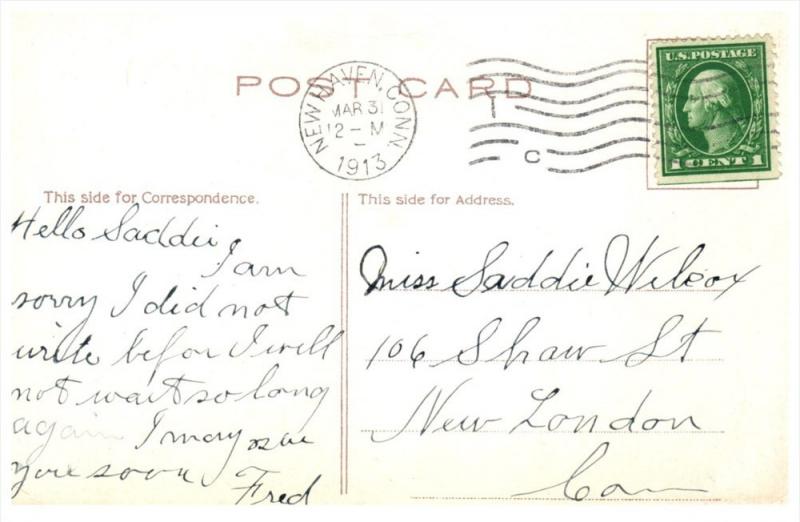 POST CARD
NEW HAVEN, CONN.
MAR 31
12-M
1913
C
U.S. POSTAGE
1 CENT 1
This side for Correspondence.
Hello Saddie
I am
sorry I did not
write befor I will
not wait so long
again I may see
you soon
Fred
This side for Address.
Miss Saddie Wilcox
106 Shaw St
New London
Con